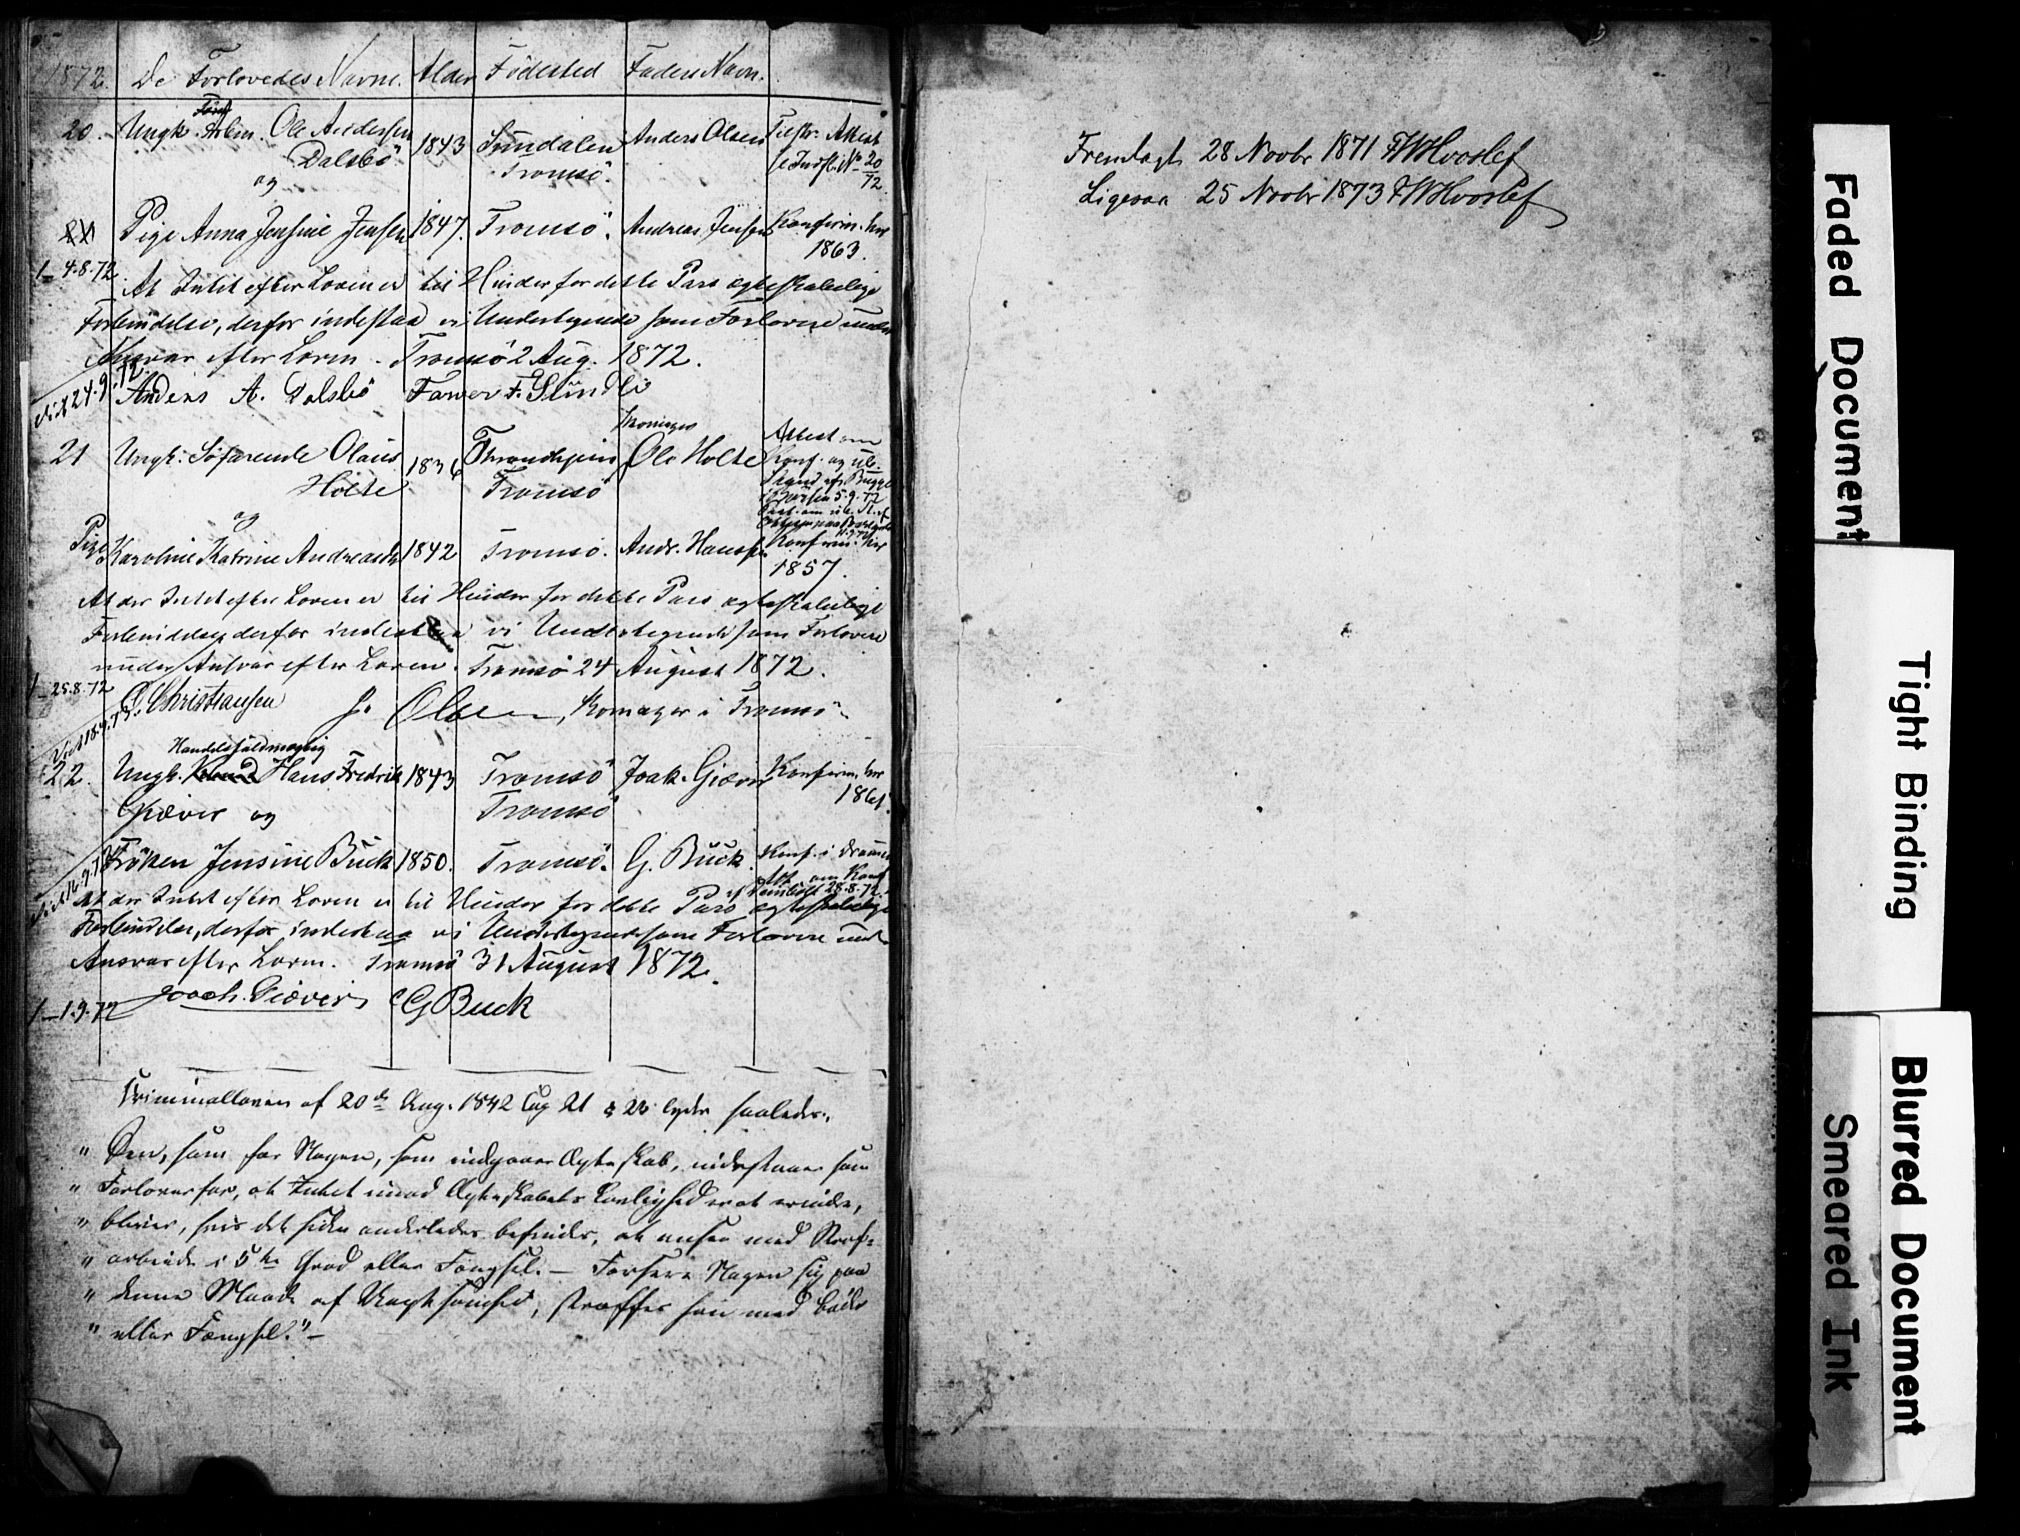 1872. De Forlovedes Navne. Alder Födested Faders Navn.
20. Ungk. Ole Andersen 1843 Sundalen Anders Olsen Attest
Dalsbö Tromsö. No 20/72
og
Pige Anna Jensine Jensen 1847. Tromsö. Andreas Jensen Konfirm. her
1863.
1 - 4.8.72
At Intet efter Loven er til Hinder for dette Pars ægteskabelige
Forbindelse, derfor indestaa vi Undertegnede som Forlovere under
Ansvar efter Loven. Tromsö 2 Aug. 1872.
Viet 24.9.72.
Anders A. Dalsbö Farver F. Sundli
21 Ungk. Söfarende Olaus 1836 Throndhjem Ole Holte Attest om
Holte Tromsö Konf. og
5.9.72
og
Pige Karoline Katrine Andreasdt. 1842 Tromsö. Andr. Hansen Konfirm. her
1857.
At der Intet efter Loven er til Hinder for dette Pars ægteskabelige
Forbindelse, derfor indestaa vi Undertegnede som Forlovere
under Ansvar efter Loven. Tromsö 24 August 1872.
1 - 25.8.72
C. Christiansen J. Olsen, Komager i Tromsö
Handelsfuldmægtig
22. Ungk. Hans Fredrik 1843 Tromsö Joak. Giæver Konfirm. her
Giæver og Tromsö
Fröken Jensine Buck 1850. Tromsö. G. Buck Konf. i Drammen
Att. om Konf.
28.8.72.
At der Intet efter Loven er til Hinder for dette Pars ægteskabelige
Forbindelse, derfor indestaa vi Undertegnede som Forlovere under
Ansvar efter Loven. Tromsö 31 August 1872.
Joach. Giæver G Buck
1 - 1.9.72
Criminalloven af 20de Aug. 1842 Cap 21 § 26 lyder saaledes:
" Den, som for Nogen, som indgaaer Ægteskab, indestaaer som
" Forlover for, at Intet imod Ægteskabets Lovlighed er at erindre,
" bliver, hvis det siden anderledes befindes, at ansee med Straf-
" arbeide i 5te Grad eller Fængsel. – Forseer Nogen sig paa
" denne Maade af Uagtsomhed, straffes han med Bøder
" eller Fængsel." –
Fremlagt 28 Novbr 1871 FWHvoslef
Ligesaa 25 Novbr 1873 FWHvoslef
Faded Document
Tight Binding
Blurred Document
Smeared Ink